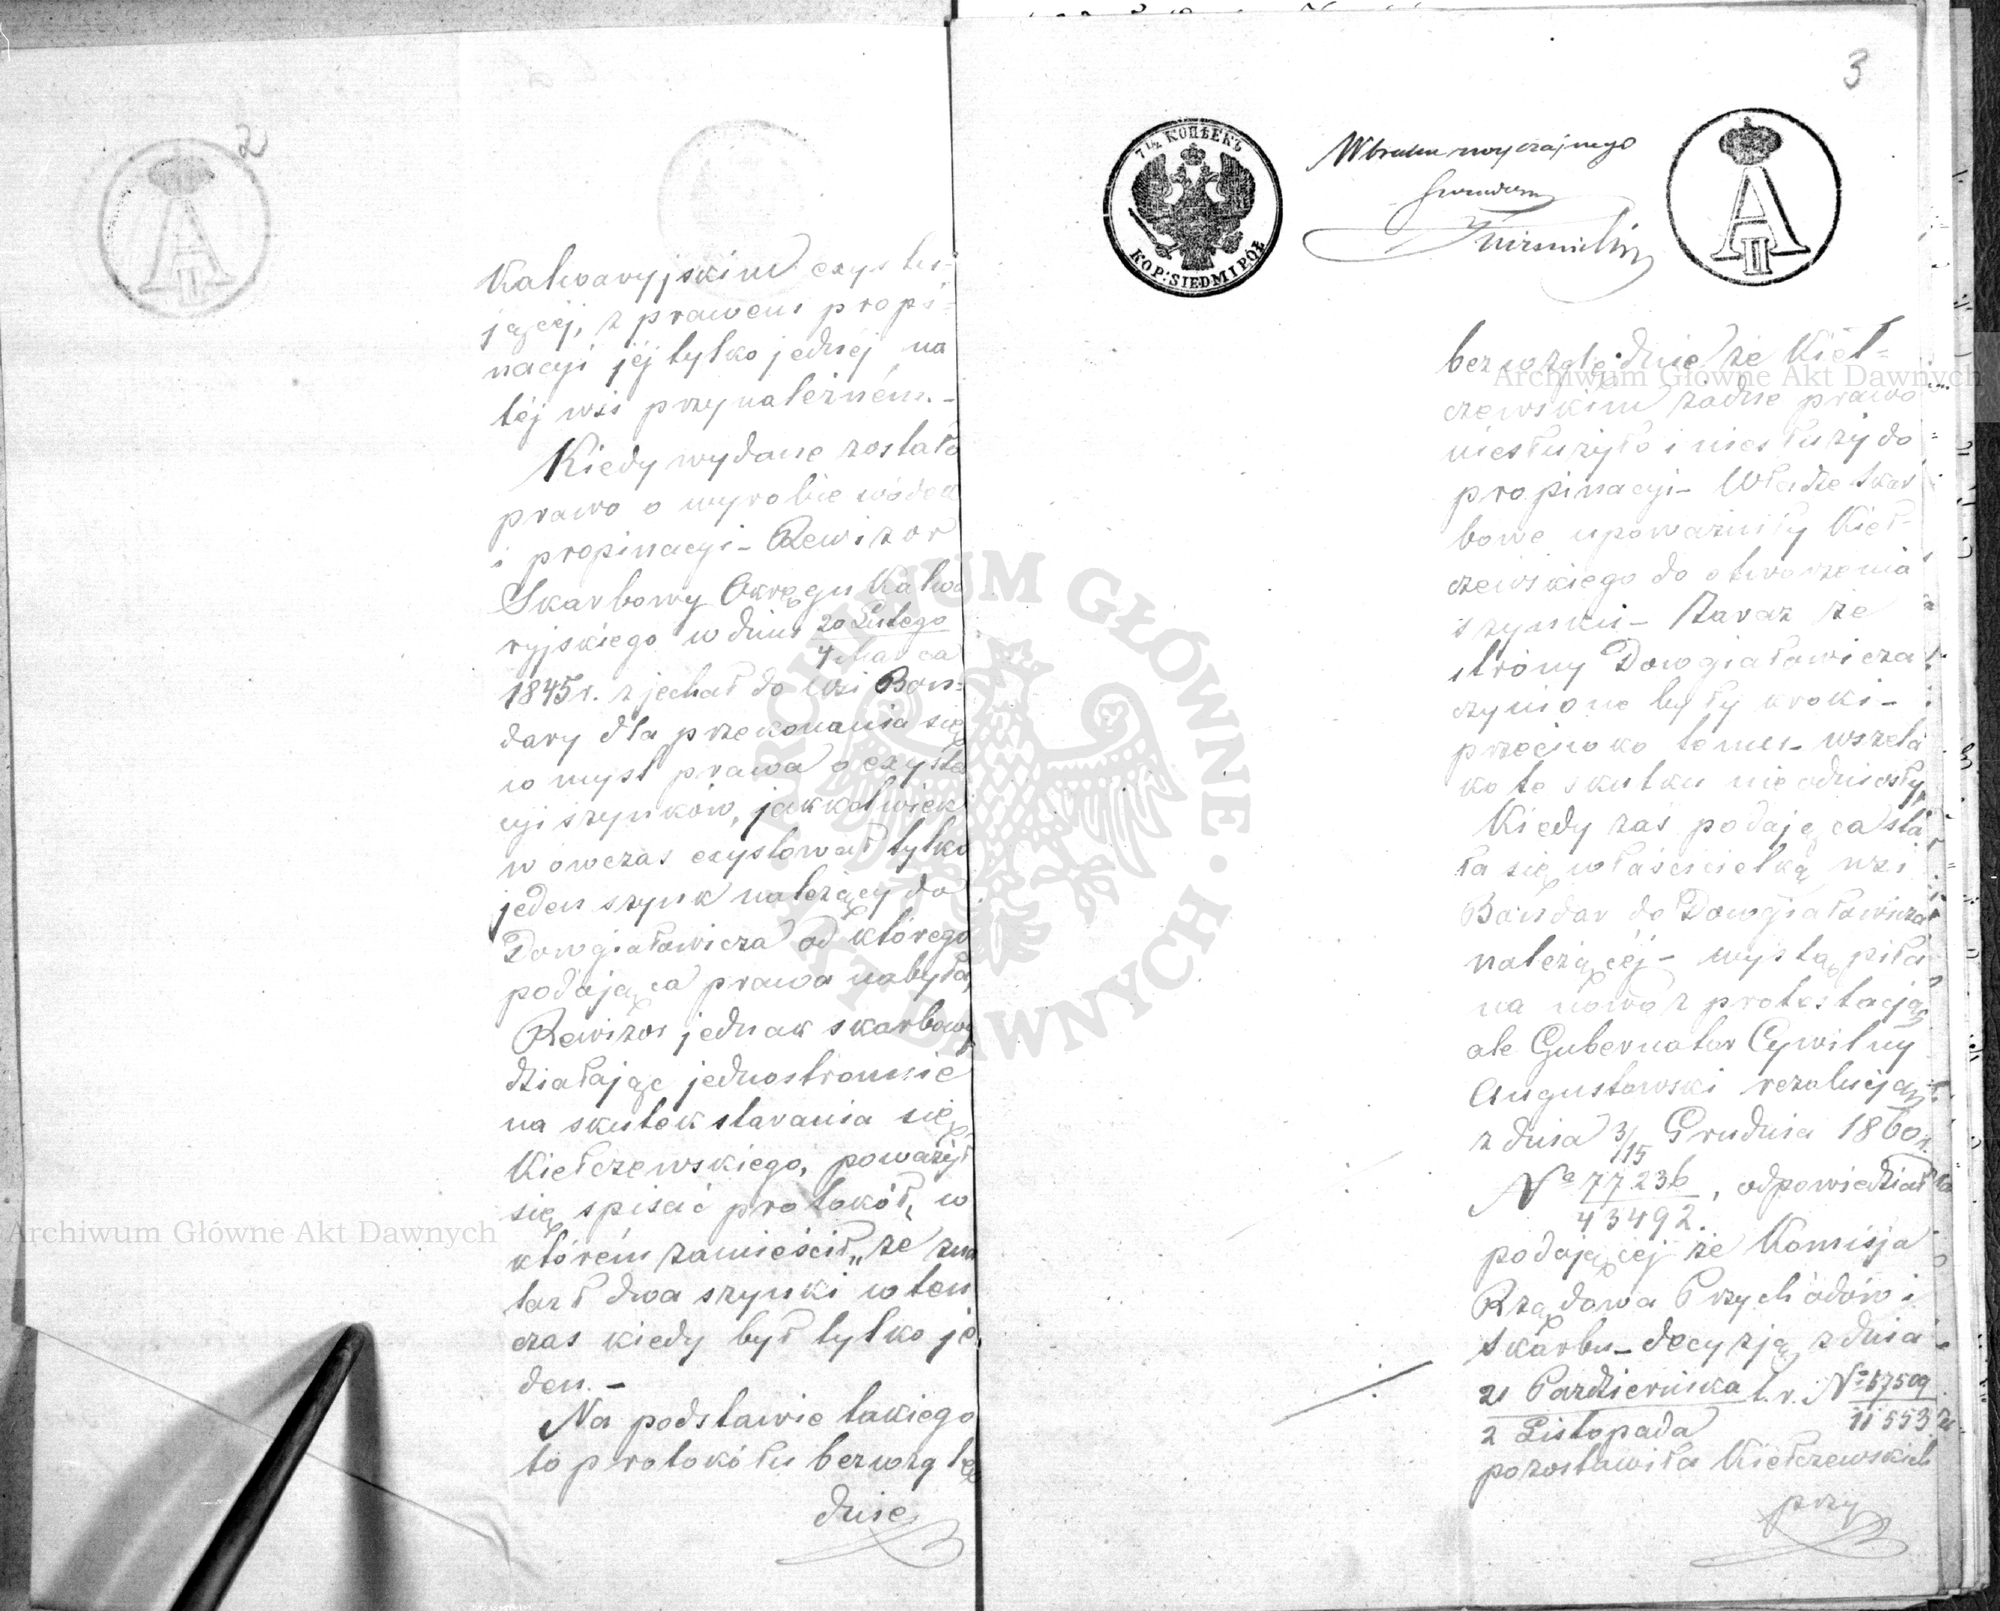 2
Kalwaryjskim exystu-
jącej, z prawem propi-
nacyi jéj tylko jednéj na
téj wsi przynależném. -
Kiedy wydane zostało
prawo o wyrobie wódek
i propinacyi - Rewizor
Skarbowy Okręgu Kalwa
ryjskiego w dniu 20 Lutego
4 Marca
1845 r. zjechał do wsi Bon-
dary dla przekonania się
w myśl prawa o exysten
cyi szynków, jakkolwiek
w ówczas exystował tylko
jeden szynk należący do
Dowgiałowicza od którego
podająca prawa nabyła,
Rewizor jednak skarbowy
działając jednostronnie
na skutek starania się
Kiełczewskiego, poważył
się spisać protokół, w
którém zamieścił „że zna
lazł dwa szynki w ten
czas kiedy był tylko je
den. -
Na podstawie takiego
to protokółu bezwzglę
dnie
3
7 1/2 КОПѢЕКЪ
KOP: SIEDM I PÓŁ
W braku zwyczajnego
A
II
bezwzględnie że Kieł-
czewskim żadne prawo
niesłużyło i niesłuży do
propinacyi - Władze Skar
bowe upoważniły Kieł-
czewskiego do otworzenia
szynku - Zaraz ze
strony Dowgiałowicza
czynione były kroki -
przeciwko temu - wszela
ko te skutku nie odniosły,
Kiedy zaś podająca sta
ła się właścicielką wsi
Bondar do Dowgiałowicza
należącéj - wystąpiła
na nowo z protestacją
ale Gubernator Cywilny
Augustowski rezolucją
z dnia 3/15 Grudnia 1860 r.
No 77236
43492. , odpowiedział
podającej że Komisja
Rządowa Przychodów i
Skarbu - decyzją z dnia
21 Października t. r. No 57509
2 Listopada 11553
pozostawiła Kiełczewskich
przy
Archiwum Główne Akt Dawnych
Archiwum Główne Akt Dawnych
Archiwum Główne Akt Dawnych
ARCHIWUM GŁÓWNE · AKT DAWNYCH ·